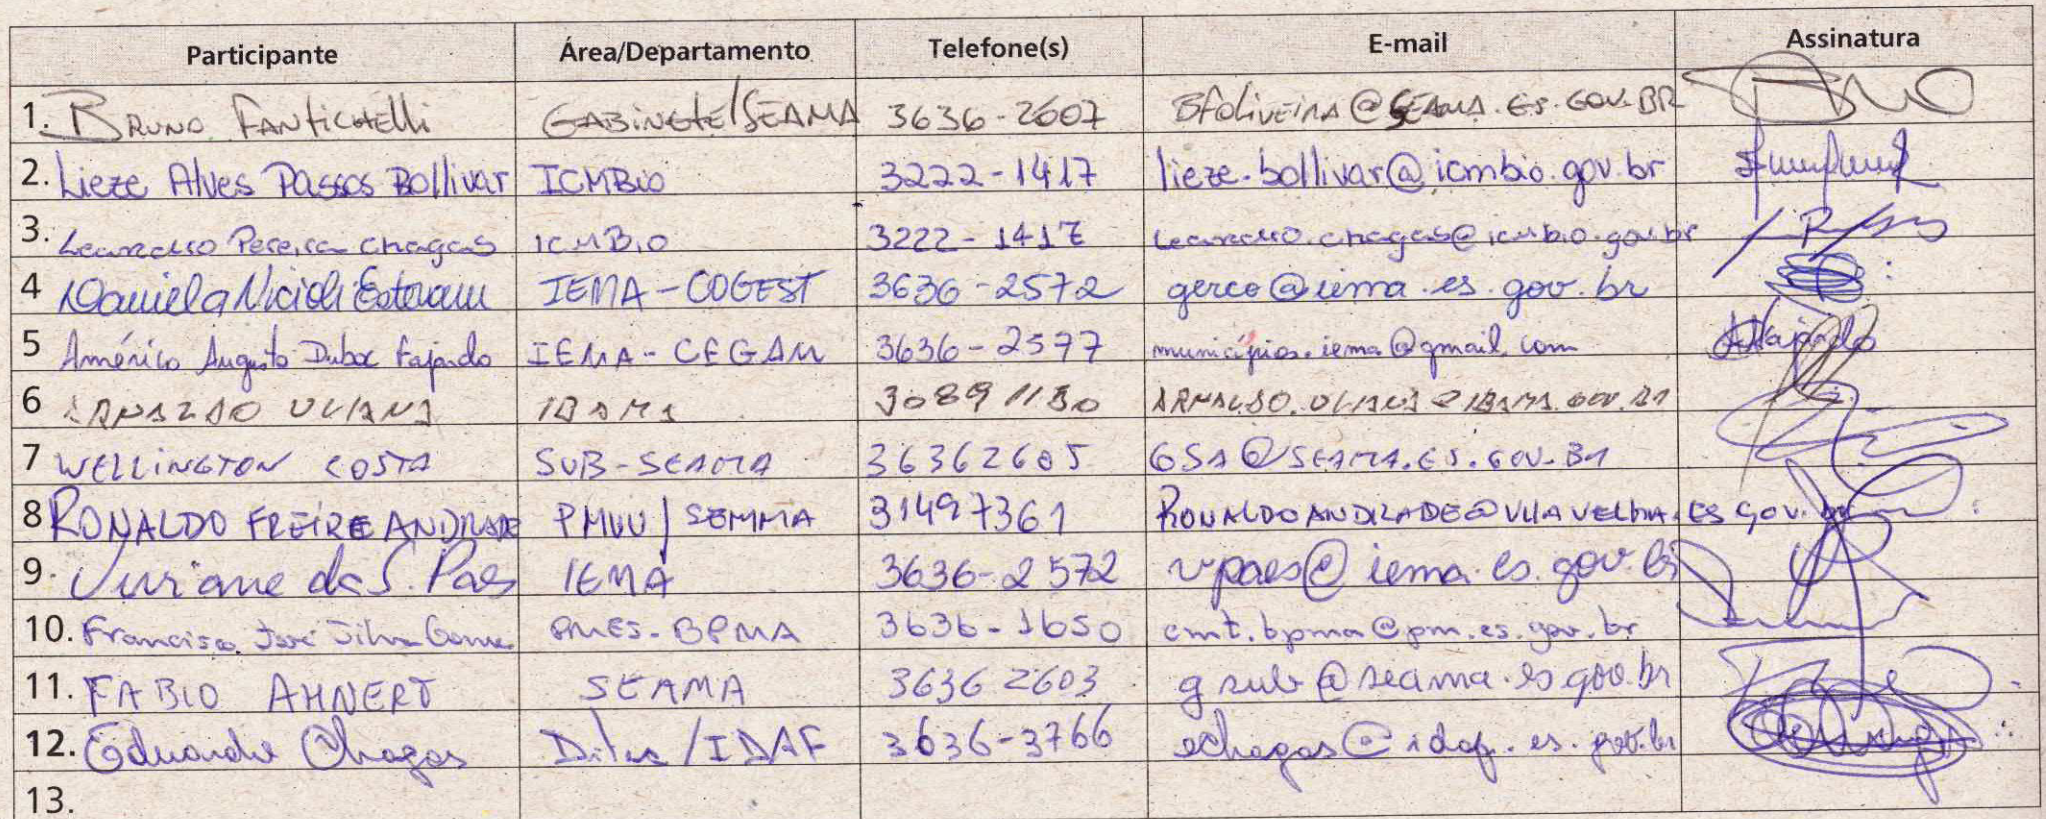 Participante Área/Departamento Telefone(s) E-mail Assinatura
1. BRUNO FANTICHELLI GABINETE/SEAMA 3636-2607 BFOLIVEIRA@SEAMA.ES.GOV.BR
2. Lieze Alves Passos Bollivar ICMBio 3222-1417 lieze.bollivar@icmbio.gov.br
3. Leandro Pereira Chagas ICMBIO 3222-1417 leandro.chagas@icmbio.gov.br
4 Daniela IEMA-COGEST 3636-2572 gerco@iema.es.gov.br
5 Américo Augusto Duboc Fajardo IEMA-CEGAM 3636-2577 municípios.iema@gmail.com
6 ARNALDO ULIANA IBAMA 30891150 ARNALDO.ULIANA@IBAMA.GOV.BR
7 WELLINGTON COSTA SUB-SEAMA 36362605 GSA@SEAMA.ES.GOV.BR
8 RONALDO FREIRE ANDRADE PMVV/SEMMA 31497361 RONALDOANDRADE@VILAVELHA.ES GOV.br
9. da S. Paes IEMA 3636-2572 vpaes@iema.es.gov.br
10. Francisco José Silva Gomes PMES-BPMA 3636-1650 cmt.bpma@pm.es.gov.br
11. FABIO AHNERT SEAMA 3636 2603 gsub@seama.es.gov.br
12. Eduardo Chagas /IDAF 3636-3766 echagas@idaf.es.gov.br
13.